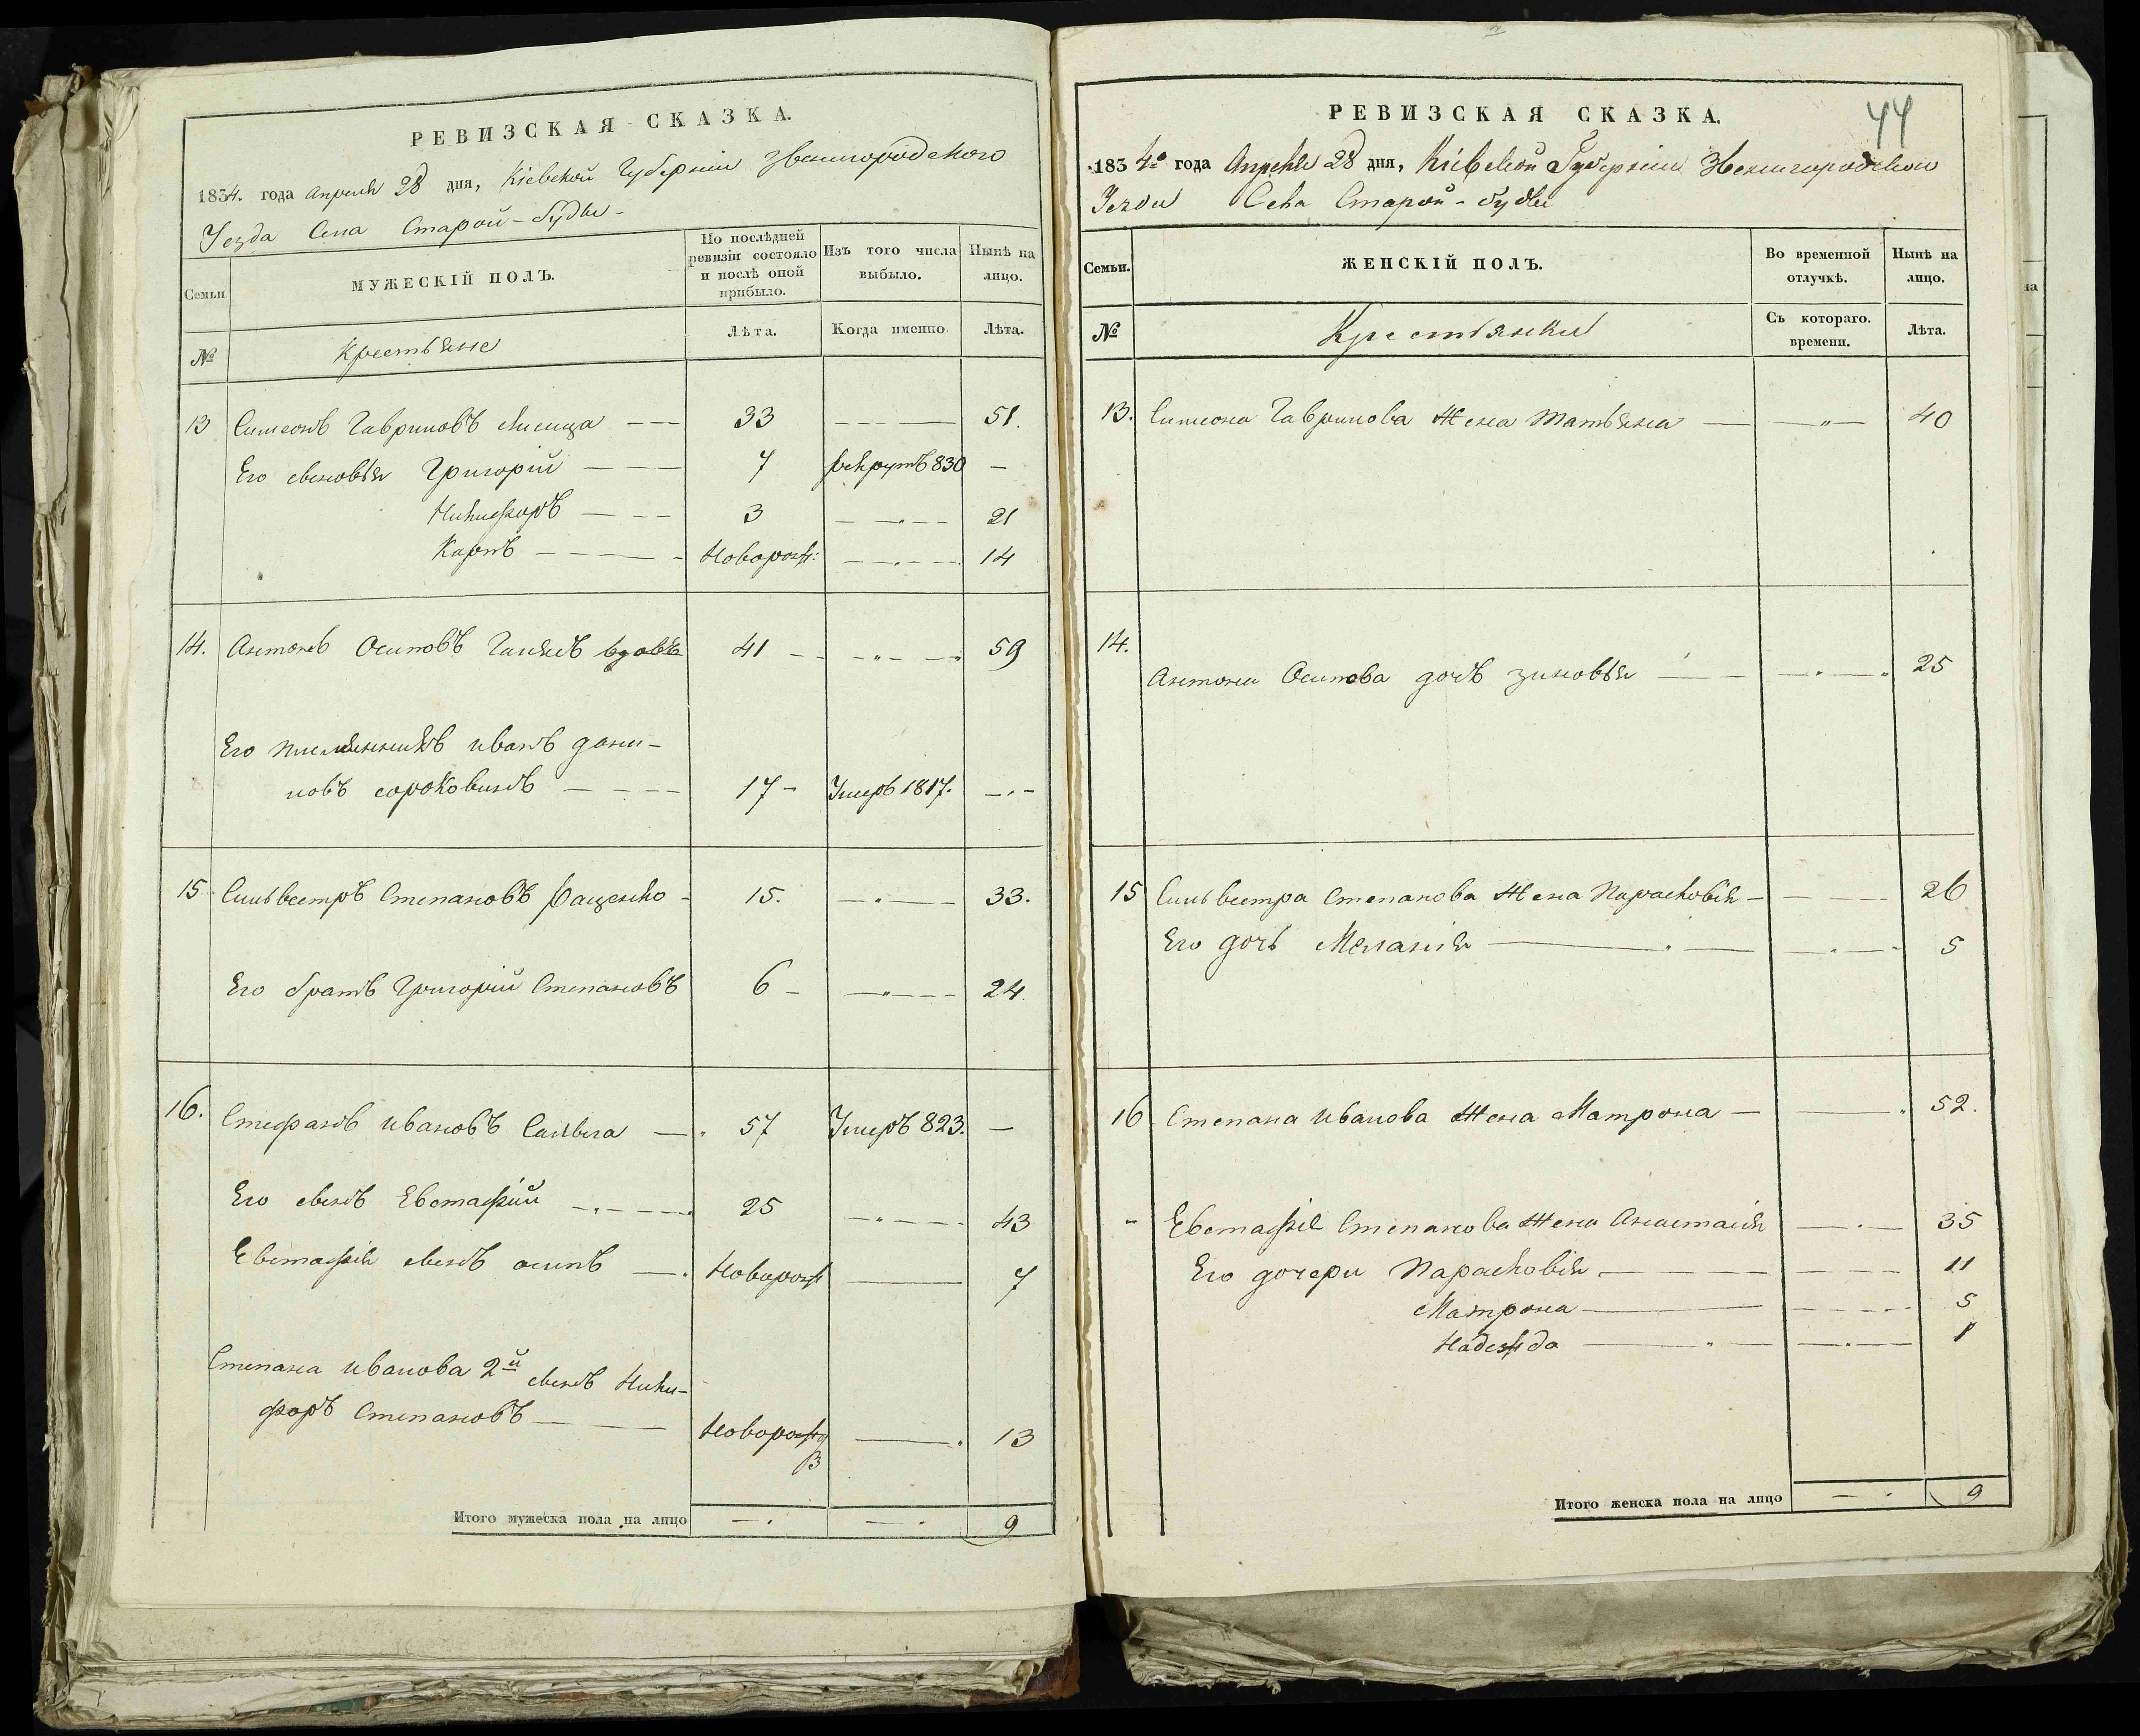 РЕВИЗСКАЯ СКАЗКА.
1834. года Апреля 28 дня, Кіевской Губерніи Звенигородского
Уезда Села Старой-Буды-
Семьи
МУЖЕСКІЙ ПОЛЪ.
По послѣдней ревизіи состояло и послѣ оной прибыло.
Изъ того числа выбыло.
Нынѣ на лицо.
№
Крестьяне
Лѣта.
Когда именно
Лѣта.
13 Симеонъ Гавриловъ Лисица 33 51.
Его сыновья Григорій 7 рекрутъ 830 —
Никифоръ 3 21
Карпъ Новорож: 14
14. Антонъ Осиповъ вдовъ 41 59
Его племянникъ Иванъ Дани-
ловъ Сороковикъ 17 - Умеръ 1817.
15 Сильвестръ Степановъ Ращенко 15. 33.
Его братъ Григорій Степановъ 6 - 24.
16. Стефанъ Ивановъ 57 Умеръ 823. —
Его сынъ Евстафій 25 43
Евстафія сынъ Осипъ Новорож 7
Степана Иванова 2й сынъ Ники-
форъ Степановъ Новорожд 13
Итого мужеска пола на лицо 9
44
РЕВИЗСКАЯ СКАЗКА.
1834го года Апреля 28 дня, Кіевской Губерніи Звенигородского
Уезда Села Старой-Буды
Семьи.
ЖЕНСКІЙ ПОЛЪ.
Во временной отлучкѣ.
Нынѣ на лицо.
№
Крестьянки
Съ котораго. времени.
Лѣта.
13. Симеона Гаврилова жена Татьяна 40
14.
Антона Осипова дочь Зиновія 25
15 Сильвестра Степанова жена Парасковія 26
Его дочь Меланія 5
16 Степана Иванова жена Матрона 52.
Евстафіе Степанова жена Анастасія 35
Его дочери Парасковія 11
Матрона 5
Надежда 1
Итого женска пола на лицо 9